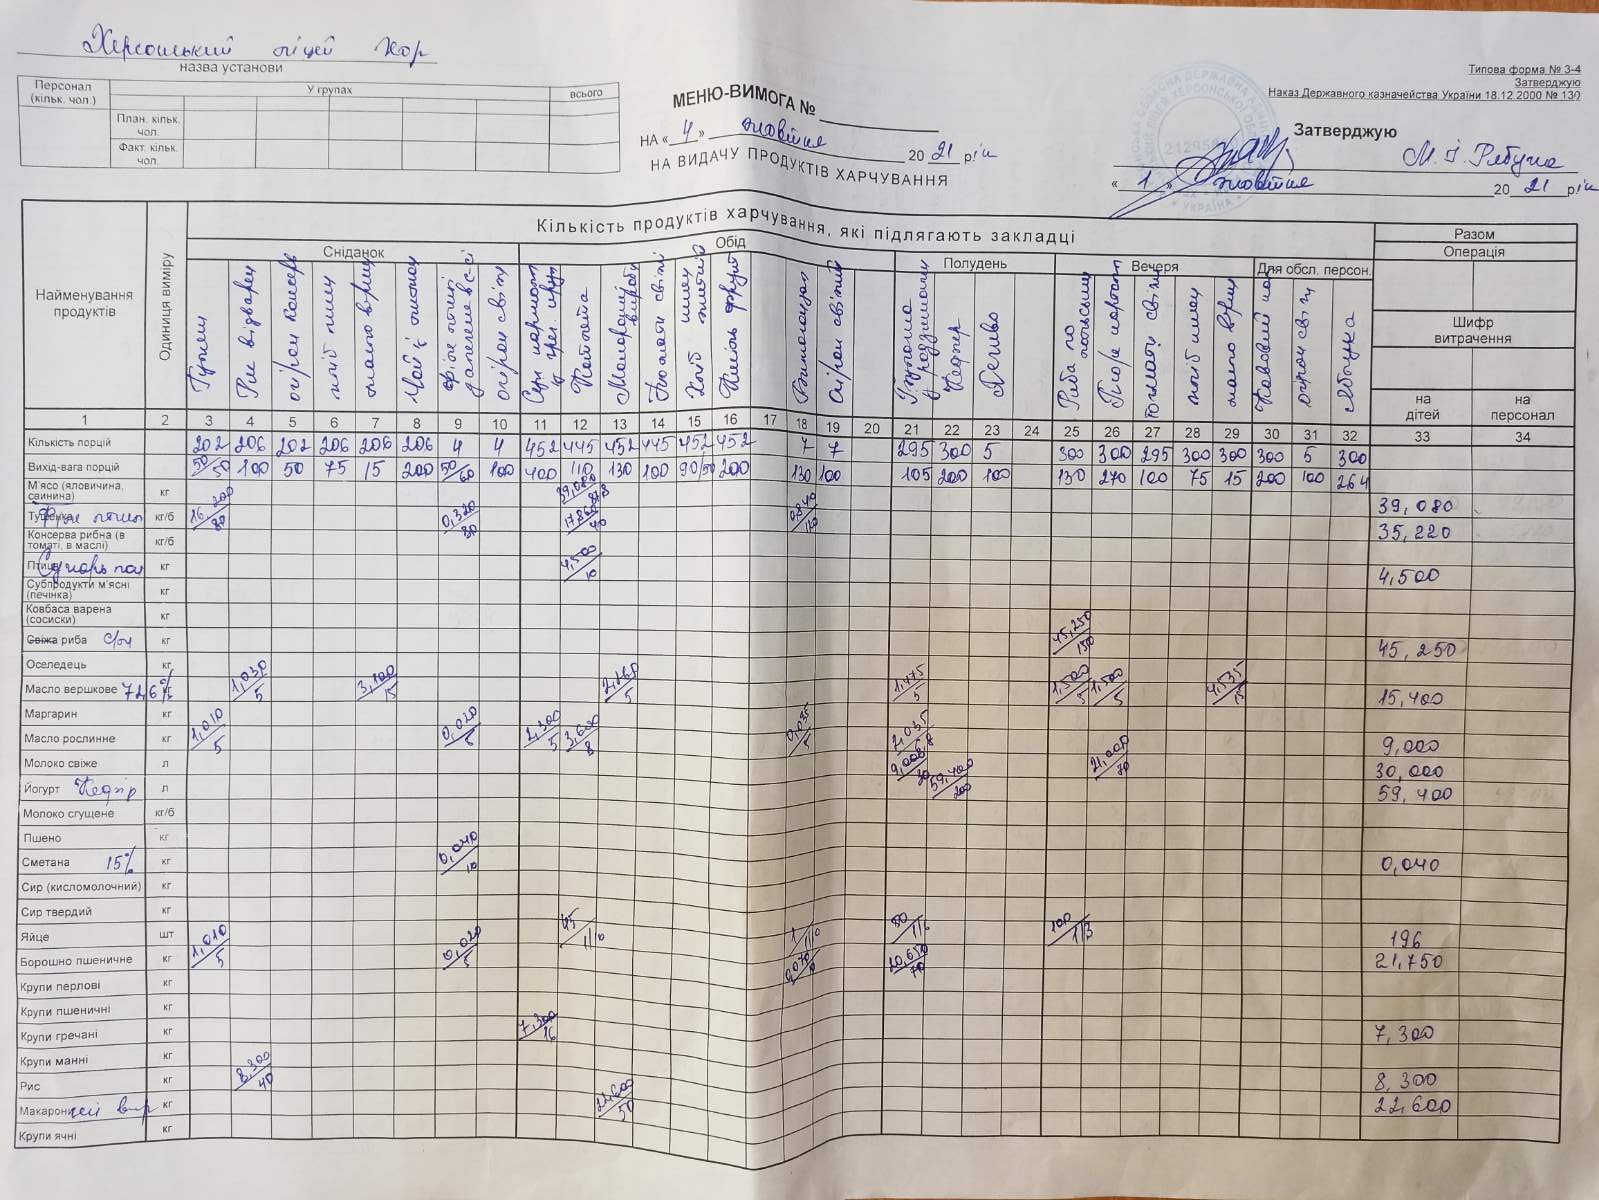 Херсонський ліцей ХОР
назва установи
Персонал (кільк. чол.)
У групах
всього
План. кільк. чол.
Факт. кільк. чол.
МЕНЮ-ВИМОГА №
НА « 4 » жовтня 20 21 рік
НА ВИДАЧУ ПРОДУКТІВ ХАРЧУВАННЯ
Типова форма № З-4
Затверджую
Наказ Державного казначейства України 18.12.2000 № 130
Затверджую
М.І. Рябуха
« 1 » жовтня 20 21 рік
Найменування продуктів
Одиниця виміру
Кількість продуктів харчування, які підлягають закладці
Разом
Сніданок
Обід
Полудень
Вечеря
Для обсл. персон.
Операція
Шифр витрачення
на дітей
на персонал
Гуляш
Рис відварен
огірок консерв
хліб пшен
масло верш
Чай з лимон
огірок свіжий
Котлета
Макаронні вироби
Помідори свіжі
Хліб пшен житній
Кисіль фрукт
Огірок свіжий
Кефір
Печиво
Риба по польськи
Пюре картоп
Помідори свіжі
хліб пшен
масло верш
огірок свіж
Яблука
1 2 3 4 5 6 7 8 9 10 11 12 13 14 15 16 17 18 19 20 21 22 23 24 25 26 27 28 29 30 31 32 33 34
Кількість порцій 202 206 202 206 206 206 4 4 452 445 452 445 452 452 7 7 295 300 5 300 300 295 300 300 300 5 300
Вихід-вага порцій 50/50 100 50 75 15 200 50/60 100 400 110 130 100 90/50 200 130 100 105 200 100 130 270 100 75 15 200 100 264
М'ясо (яловичина, свинина) кг 39,080 39,080
Тушенка кг/б 16,200/80 0,320/80 17,860/40 0,840/120 35,220
Консерва рибна (в томаті, в маслі) кг/б
Птиця кг 4,500/10 4,500
Субпродукти м'ясні (печінка) кг
Ковбаса варена (сосиски) кг
Свіжа риба с/м кг 45,250/150 45,250
Оселедець кг
Масло вершкове 72,6% кг 1,030/5 3,100/15 2,260/5 1,475/5 1,500/5 1,500/5 4,535/15 15,400
Маргарин кг
Масло рослинне кг 1,010/5 0,020/5 2,300/5 3,600/8 0,035/5 2,035/6,8 9,000
Молоко свіже л 9,000/30 21,000/70 30,000
Йогурт Кефір л 59,400/200 59,400
Молоко сгущене кг/б
Пшено кг
Сметана 15% кг 0,040/10 0,040
Сир (кисломолочний) кг
Сир твердий кг
Яйце шт 45/1/10 1/1/10 50/1/6 100/1/3 196
Борошно пшеничне кг 1,010/5 0,020/5 0,070/10 20,650/70 21,750
Крупи перлові кг
Крупи пшеничні кг
Крупи гречані кг 7,300/16 7,300
Крупи манні кг
Рис кг 8,300/40 8,300
Макаронні вир кг 22,600/50 22,600
Крупи ячні кг